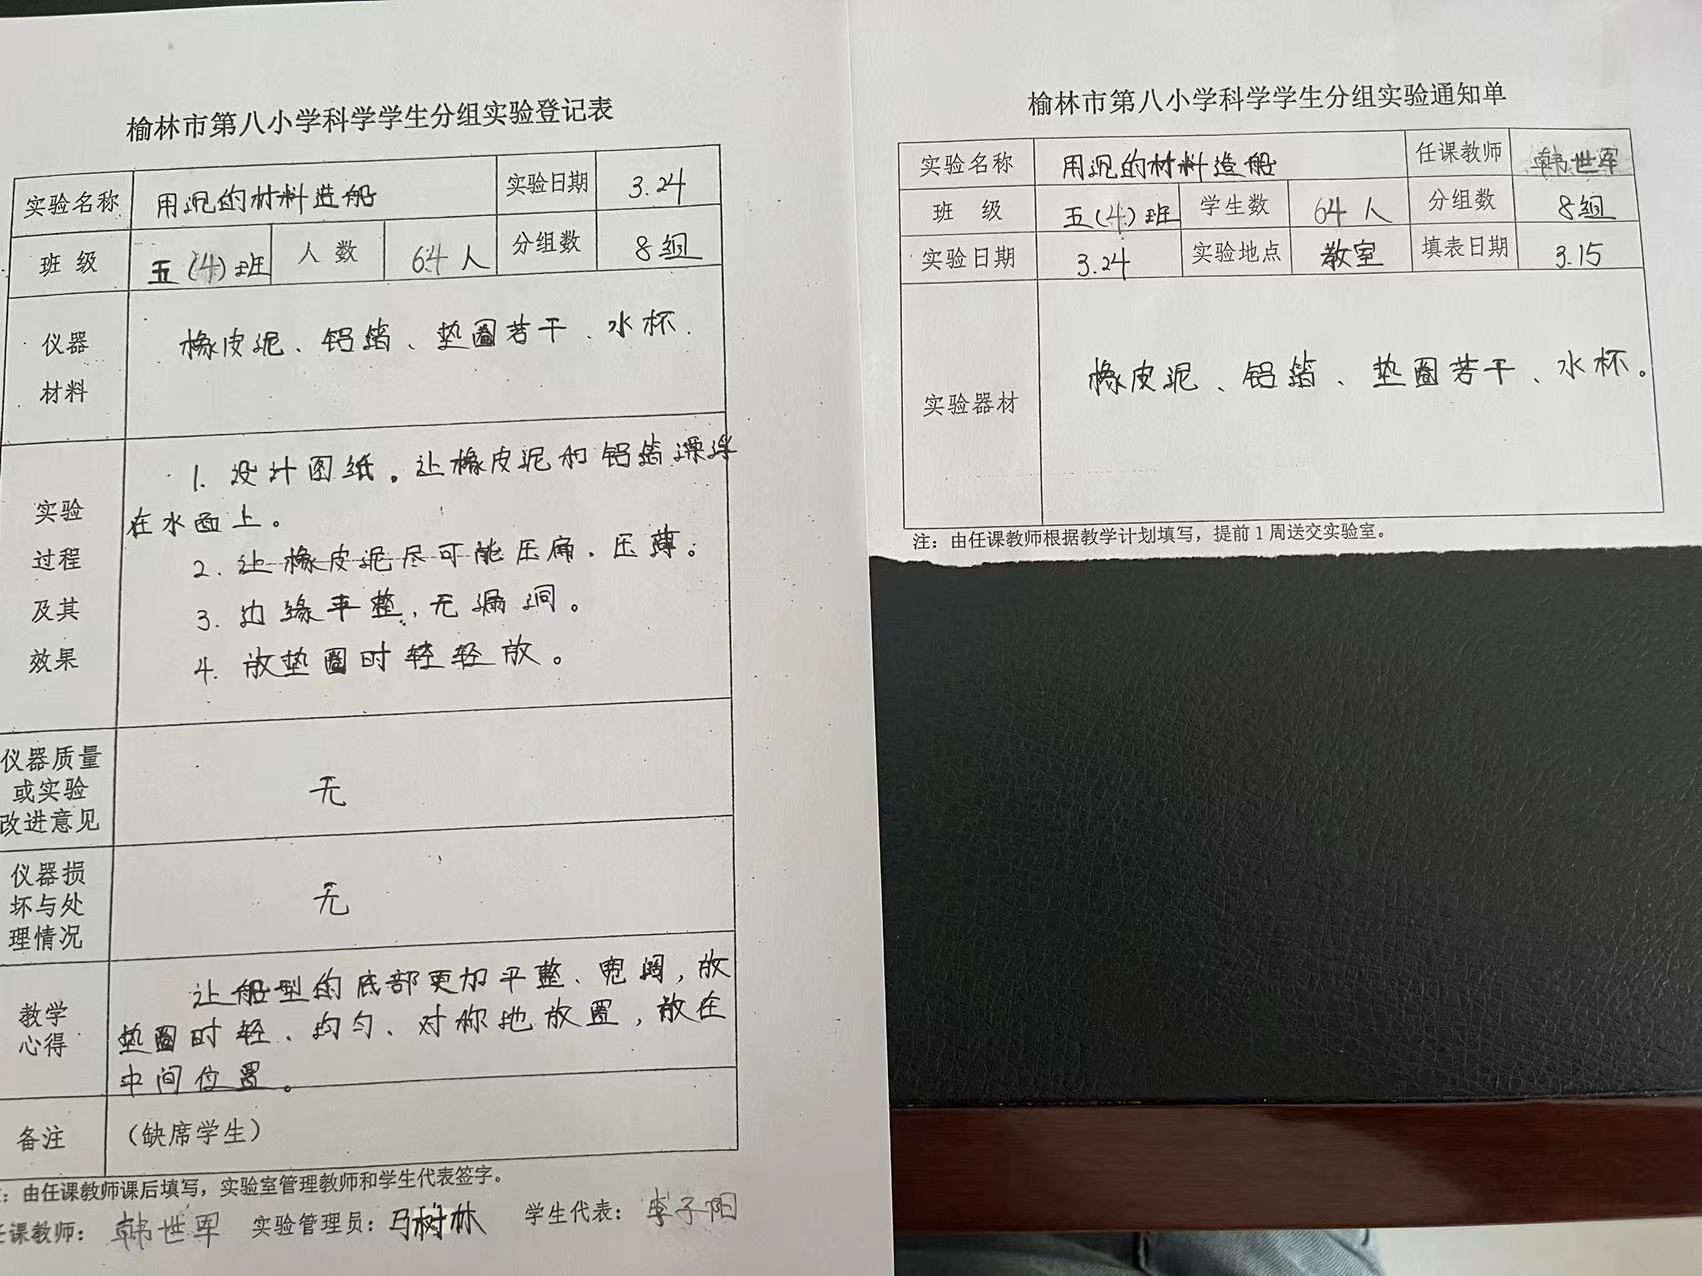 榆林市第八小学科学学生分组实验登记表
实验名称 用沉的材料造船 实验日期 3.24
班 级 五(4)班 人 数 64人 分组数 8组
仪器
材料
橡皮泥、铝箔、垫圈若干、水杯.
实验
过程
及其
效果
1. 设计图纸。让橡皮泥和铝箔漂浮
在水面上。
2. 让橡皮泥尽可能压扁、压薄。
3. 边缘平整,无漏洞。
4. 放垫圈时轻轻放。
仪器质量
或实验
改进意见
无
仪器损
坏与处
理情况
无
教学
心得
让船型的底部更加平整、宽阔,放
垫圈时轻、均匀、对称地放置,放在
中间位置。
备注 (缺席学生)
:由任课教师课后填写,实验室管理教师和学生代表签字。
任课教师: 韩世军 实验管理员: 马树林 学生代表: 李子阳
榆林市第八小学科学学生分组实验通知单
实验名称 用沉的材料造船 任课教师 韩世军
班 级 五(4)班 学生数 64人 分组数 8组
实验日期 3.24 实验地点 教室 填表日期 3.15
实验器材 橡皮泥、铝箔、垫圈若干、水杯。
注:由任课教师根据教学计划填写,提前1周送交实验室。